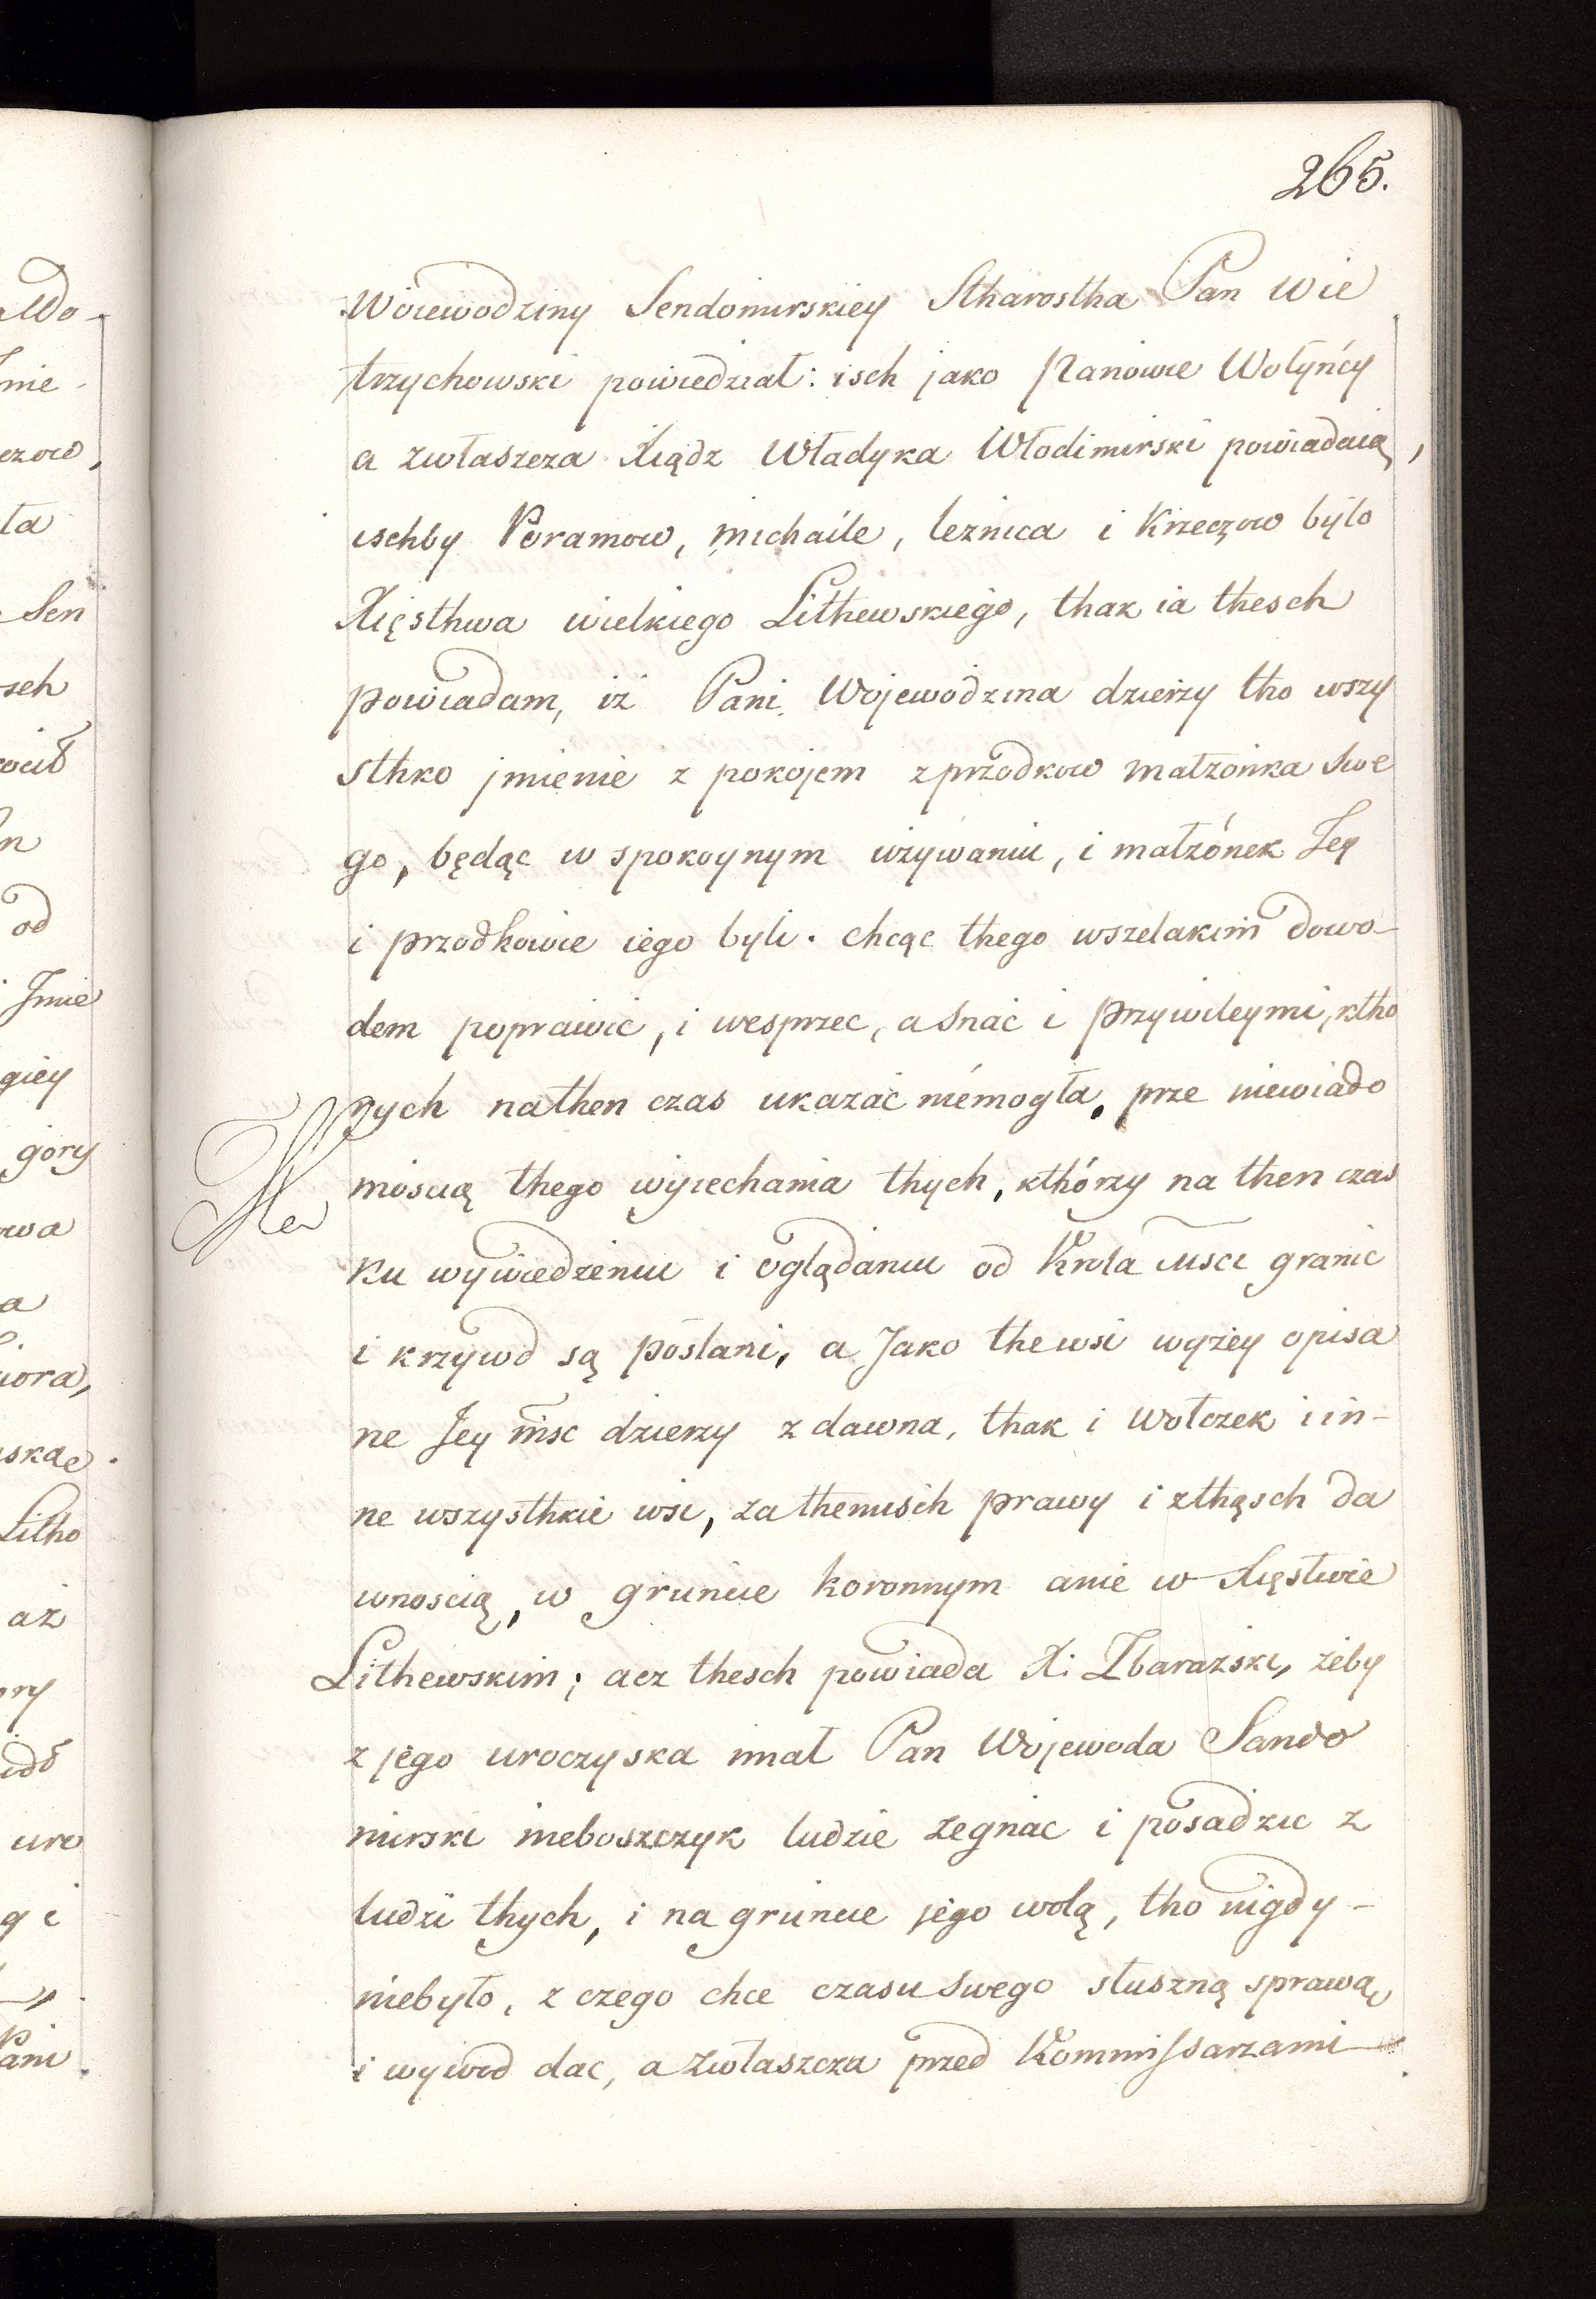 265.
Woiewodziny Sendomirskiey Stharostha Pan Wie
trzychowski powiedział: isch jako Panowie Wołyńcy
a zwłaszcza Xiądz Władyka Włodimirski powiadaią,
ischby Poramow, michaile, leznica i Krzeczow było
Xięsthwa wielkiego Lithewskiego, thak ia thesch
powiadam, iż Pani Wojewodzina dzierży tho wszy
sthko jmienie z pokojem z przodkow małżonka swe
go, będąc w spokoynym używaniu, i małżónek Jey
i przodkowie iego byli. chcąc thego wszelakim dowo-
dem poprawić, i wesprzec, a snać i przywileymi, ktho
rych nathen czas ukazać niémogła, prze niewiado
mością thego wyiechania thych, kthórzy na then czas
ku wywiedzeniu i oglądaniu od Krola iḿsci granic
i krzywd są posłani, a Jako the wsi wyżey opisa
ne Jey m̃sc dzierzy z dawna, thak i Wołczek i in-
ne wszysthkie wsi, za themisch prawy i zthąsch da
wnoscią, w gruncie koronnym a nie w Xięstwie
Lithewskim; acz thesch powiada X: Zbarazski, żeby
z jego uroczyska miał Pan Wojewoda Sando
mirski nieboszczyk ludzie zegnac i posadzic z
ludzi thych, i na gruncie jego wolą, tho nigdy-
niebyło, z czego chce czasu swego słuszną sprawą
i wywod dac, a zwłaszcza przed Kommissarzami